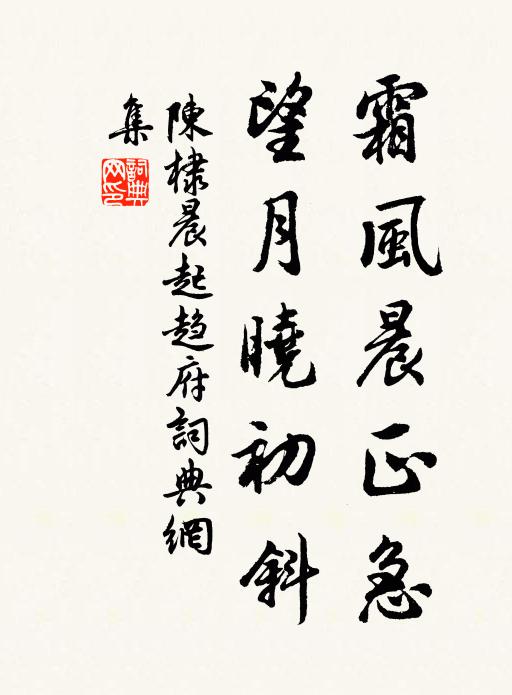 霜風晨正急
望月曉初斜
陳棣晨起趨府詞典網
集
詞典網印